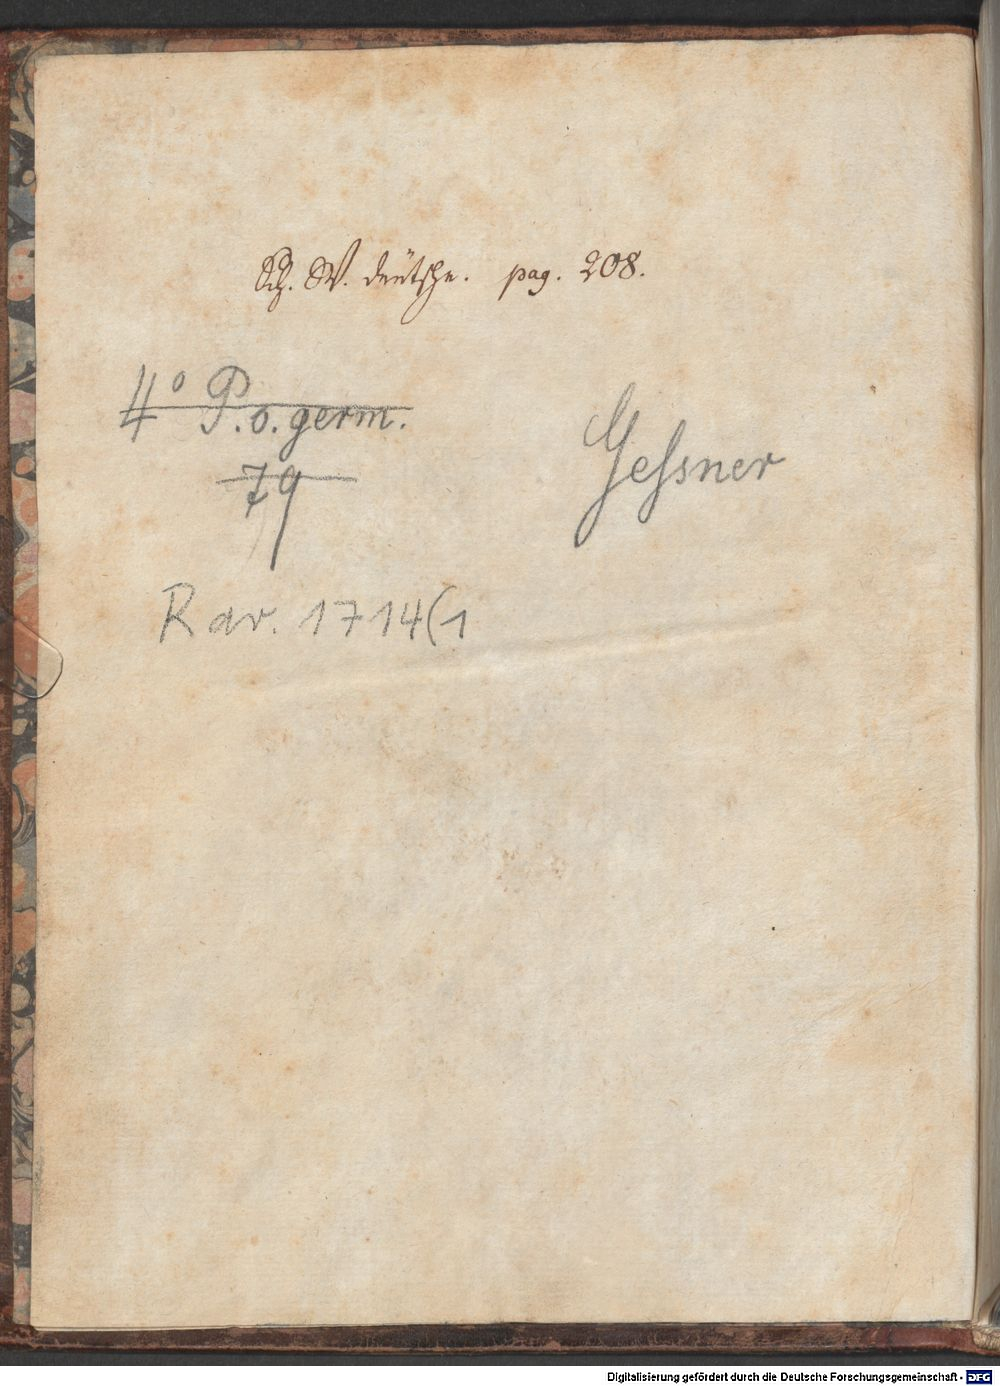 Sch. W. deütsche. pag. 208.
4° P.o.germ.
79
Geſsner
Rar. 1714(1
Digitalisierung gefördert durch die Deutsche Forschungsgemeinschaft - DFG